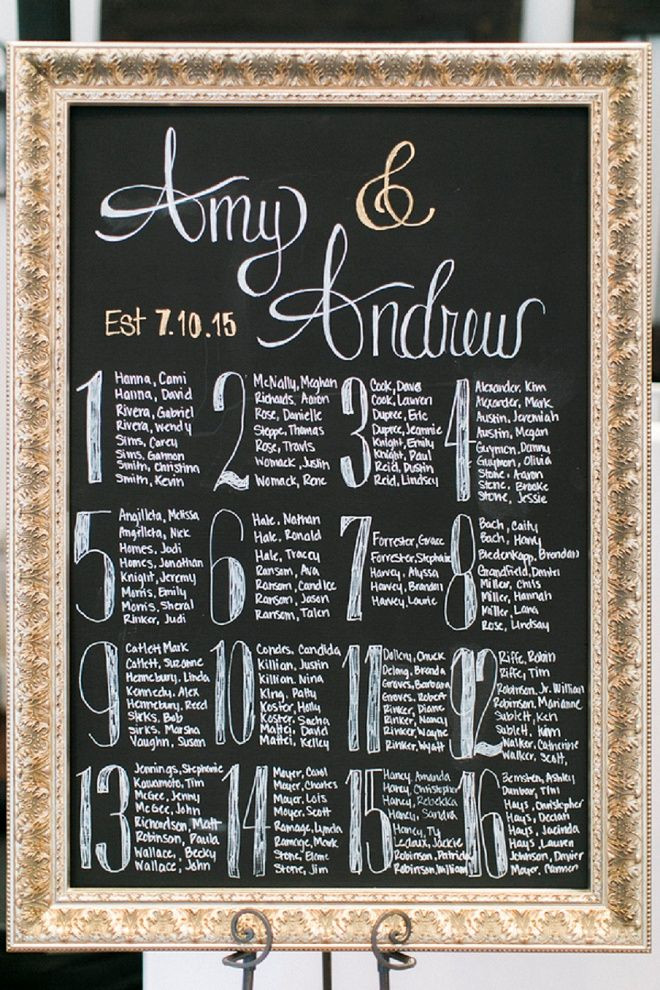 Amy &
Andrew
Est 7.10.15
1
Hanna, Cami
Hanna, David
Rivera, Gabriel
Rivera, Wendy
Sims, Carey
Sims, Gannon
Smith, Christina
Smith, Kevin
2
McNally, Meghan
Richards, Aaron
Rose, Danielle
Steppe, Thomas
Rose, Travis
Womack, Justin
Womack, Rene
3
Cook, David
Cook, Lauren
Dupree, Eric
Dupree, Jeannie
Knight, Emily
Knight, Paul
Reid, Dustin
Reid, Lindsey
4
Alexander, Kim
Alexander, Mark
Austin, Jeremiah
Austin, Megan
Guymon, Danny
Guymon, Olivia
Stone, Aaron
Stone, Brooke
Stone, Jessie
5
Angilleta, Melissa
Angilleta, Nick
Homes, Jodi
Homes, Jonathan
Knight, Jeremy
Morris, Emily
Morris, Sheral
Rinker, Judi
6
Hale, Nathan
Hale, Ronald
Hale, Tracey
Ransom, Ava
Ransom, Candice
Ransom, Jason
Ransom, Talen
7
Forrester, Grace
Forrester, Stephanie
Harvey, Alyssa
Harvey, Brandon
Harvey, Laurie
8
Bach, Caity
Bach, Harry
Biedenkapp, Brendan
Grandfield, Daniel
Miller, Chris
Miller, Hannah
Miller, Lana
Rose, Lindsay
9
Catlett Mark
Catlett, Suzanne
Hennebury, Linda
Kennedy, Alex
Hennebury, Reed
Sirks, Bob
Sirks, Marsha
Vaughn, Susan
10
Condes, Candida
Killian, Justin
Killian, Nina
King, Patty
Koster, Holly
Koster, Sacha
Mattei, David
Mattei, Kelley
11
Dallery, Chuck
Delong, Brenda
Graves, Barbara
Graves, Robert
Rinker, Diane
Rinker, Nancy
Rinker, Wayne
Rinker, Wyatt
12
Riffe, Robin
Riffe, Tim
Robinson, Jr. William
Robinson, Marianne
Sublett, Ken
Sublett, Kim
Walker, Catherine
Walker, Scott
13
Jennings, Stephanie
Kawamoto, Tim
McGee, Jenny
McGee, John
Richardson, Matt
Robinson, Paula
Wallace, Becky
Wallace, John
14
Mayer, Carol
Mayer, Charles
Mayer, Lois
Mayer, Scott
Ramage, Lynda
Ramage, Mark
Stone, Elaine
Stone, Jim
15
Haney, Amanda
Haney, Christopher
Haney, Rebekka
Haney, Sandra
Haney, Ty
Ledaux, Jackie
Robinson, Patricia
Robinson, William
16
Bernsten, Ashley
Dunbar, Tim
Hays, Christopher
Hays, Declan
Hays, Jacinda
Hays, Lauren
Johnson,
Mayer, Conner